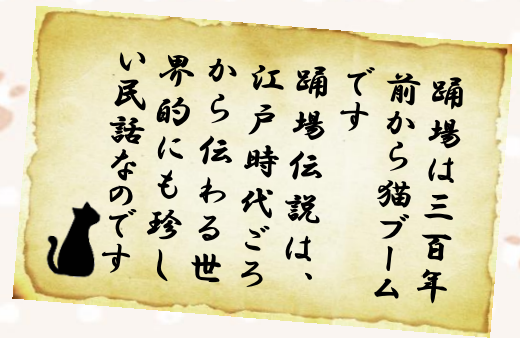 踊場は三百年
前から猫ブーム
です
踊場伝説は、
江戸時代ごろ
から伝わる世
界的にも珍し
い民話なのです